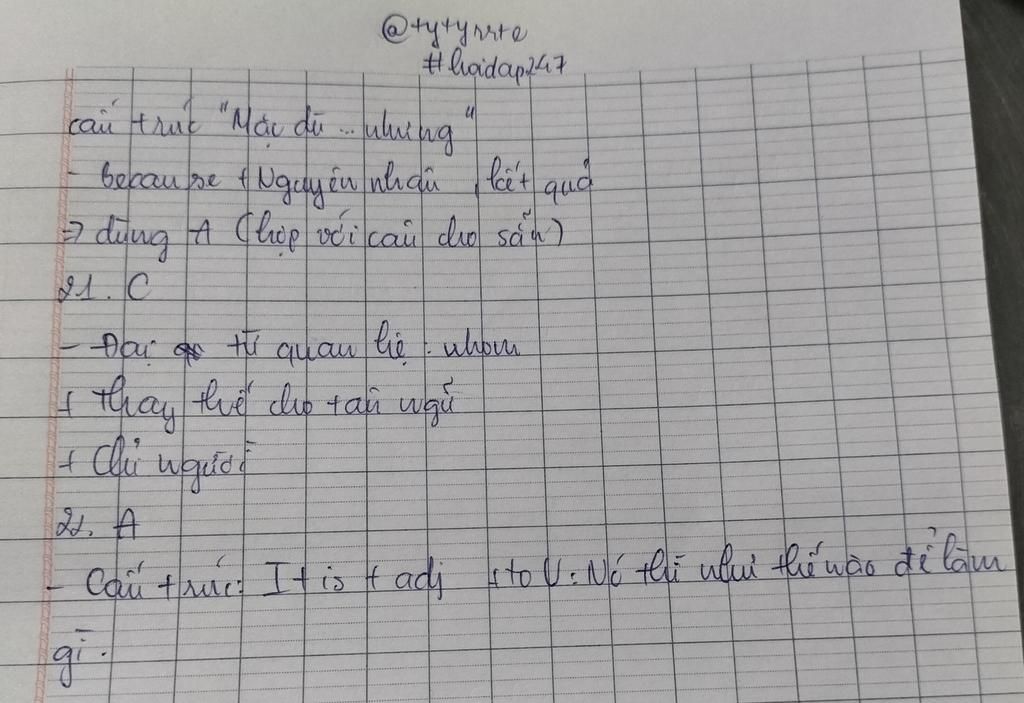 @tytyrrte
#hoidap247
cấu trúc "Mặc dù ... nhưng"
- because + Nguyên nhân, kết quả
=> dùng A (hợp với câu cho sẵn)
21. C
- Đại từ quan hệ: whom
+ thay thế cho tân ngữ
+ Chỉ người
22. A
- Cấu trúc: It is + adj + to V: Nó thì như thế nào để làm
gì.